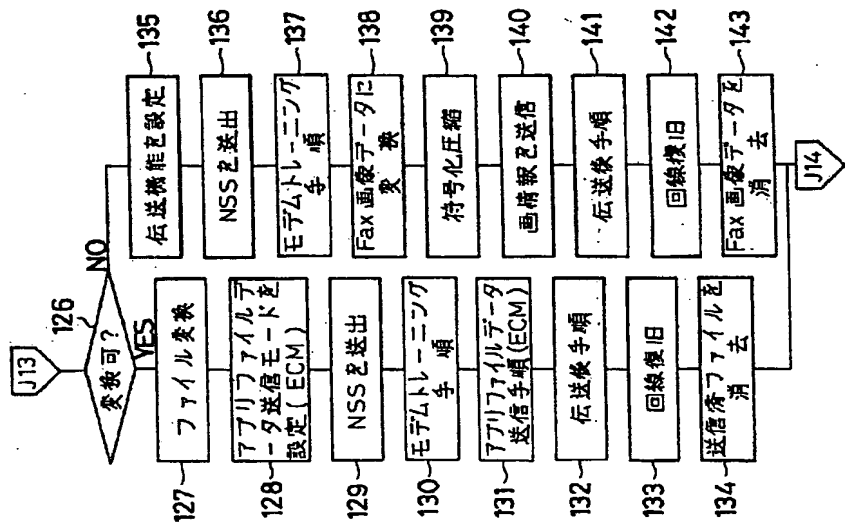 J13
126
変換可?
NO
YES
127
ファイル変換
128
アプリファイルデ
ータ送信モードを
設定(ECM)
129
NSSを送出
130
モデムトレーニング
手順
131
アプリファイルデータ
送信手順(ECM)
132
伝送後手順
133
回線復旧
134
送信済ファイルを
消去
135
伝送機能を設定
136
NSSを送出
137
モデムトレーニング
手順
138
Fax画像データに
変換
139
符号化圧縮
140
画情報を送信
141
伝送後手順
142
回線復旧
143
Fax画像データを
消去
J14